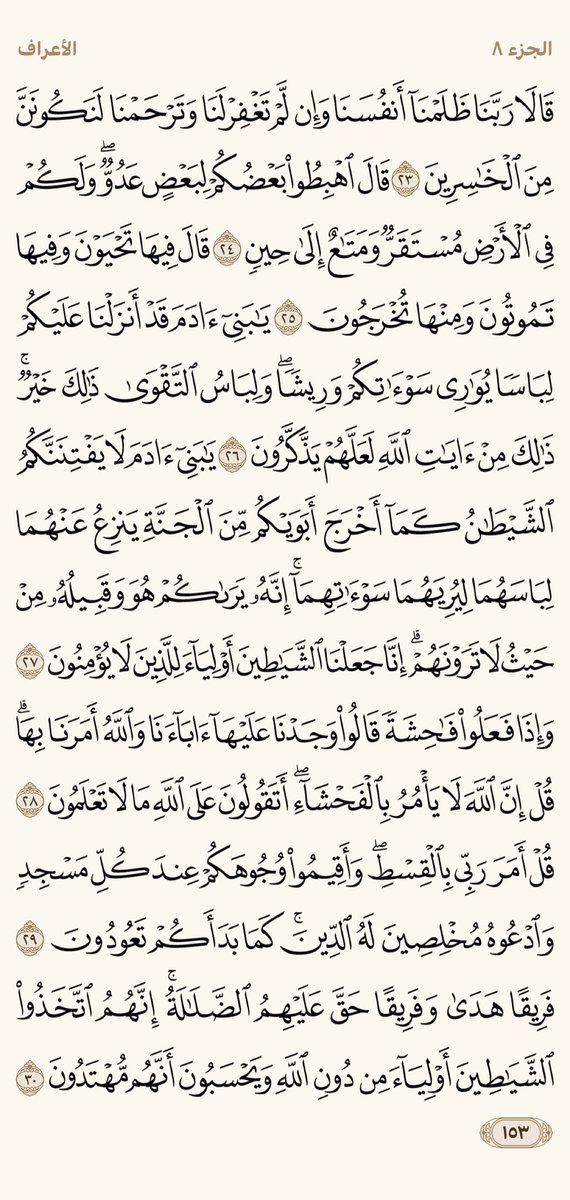 الجزء ٨
الأعراف
قَالَا رَبَّنَا ظَلَمْنَآ أَنفُسَنَا وَإِن لَّمْ تَغْفِرْ لَنَا وَتَرْحَمْنَا لَنَكُونَنَّ
مِنَ ٱلْخَٰسِرِينَ ٢٣ قَالَ ٱهْبِطُوا۟ بَعْضُكُمْ لِبَعْضٍ عَدُوٌّ ۖ وَلَكُمْ
فِى ٱلْأَرْضِ مُسْتَقَرٌّ وَمَتَٰعٌ إِلَىٰ حِينٍ ٢٤ قَالَ فِيهَا تَحْيَوْنَ وَفِيهَا
تَمُوتُونَ وَمِنْهَا تُخْرَجُونَ ٢٥ يَٰبَنِىٓ ءَادَمَ قَدْ أَنزَلْنَا عَلَيْكُمْ
لِبَاسًا يُوَٰرِى سَوْءَٰتِكُمْ وَرِيشًا ۖ وَلِبَاسُ ٱلتَّقْوَىٰ ذَٰلِكَ خَيْرٌ ۚ
ذَٰلِكَ مِنْ ءَايَٰتِ ٱللَّهِ لَعَلَّهُمْ يَذَّكَّرُونَ ٢٦ يَٰبَنِىٓ ءَادَمَ لَا يَفْتِنَنَّكُمُ
ٱلشَّيْطَٰنُ كَمَآ أَخْرَجَ أَبَوَيْكُم مِّنَ ٱلْجَنَّةِ يَنزِعُ عَنْهُمَا
لِبَاسَهُمَا لِيُرِيَهُمَا سَوْءَٰتِهِمَآ ۗ إِنَّهُۥ يَرَىٰكُمْ هُوَ وَقَبِيلُهُۥ مِنْ
حَيْثُ لَا تَرَوْنَهُمْ ۗ إِنَّا جَعَلْنَا ٱلشَّيَٰطِينَ أَوْلِيَآءَ لِلَّذِينَ لَا يُؤْمِنُونَ ٢٧
وَإِذَا فَعَلُوا۟ فَٰحِشَةً قَالُوا۟ وَجَدْنَا عَلَيْهَآ ءَابَآءَنَا وَٱللَّهُ أَمَرَنَا بِهَا ۗ
قُلْ إِنَّ ٱللَّهَ لَا يَأْمُرُ بِٱلْفَحْشَآءِ ۖ أَتَقُولُونَ عَلَى ٱللَّهِ مَا لَا تَعْلَمُونَ ٢٨
قُلْ أَمَرَ رَبِّى بِٱلْقِسْطِ ۖ وَأَقِيمُوا۟ وُجُوهَكُمْ عِندَ كُلِّ مَسْجِدٍ
وَٱدْعُوهُ مُخْلِصِينَ لَهُ ٱلدِّينَ ۚ كَمَا بَدَأَكُمْ تَعُودُونَ ٢٩
فَرِيقًا هَدَىٰ وَفَرِيقًا حَقَّ عَلَيْهِمُ ٱلضَّلَٰلَةُ ۗ إِنَّهُمُ ٱتَّخَذُوا۟
ٱلشَّيَٰطِينَ أَوْلِيَآءَ مِن دُونِ ٱللَّهِ وَيَحْسَبُونَ أَنَّهُم مُّهْتَدُونَ ٣٠
١٥٣